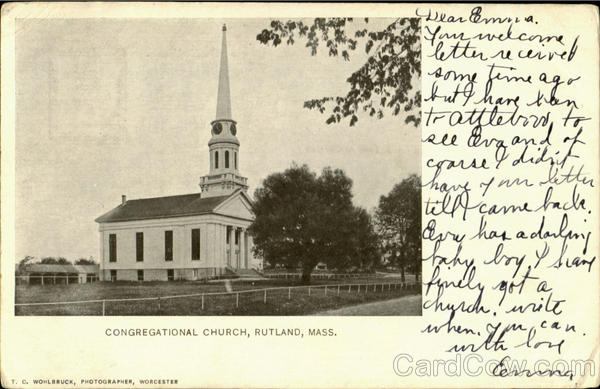 Dear Emma.
Your welcome
letter received
some time ago
but I have been
to Attleboro, to
see Eva and of
coarse I didn't
have your letter
till I came back.
Evy has a darling
baby boy I
finely got a
church. write
when you can.
with love
Emma
CONGREGATIONAL CHURCH, RUTLAND, MASS.
T. C. WOHLBRUCK, PHOTOGRAPHER, WORCESTER
CardCow.com